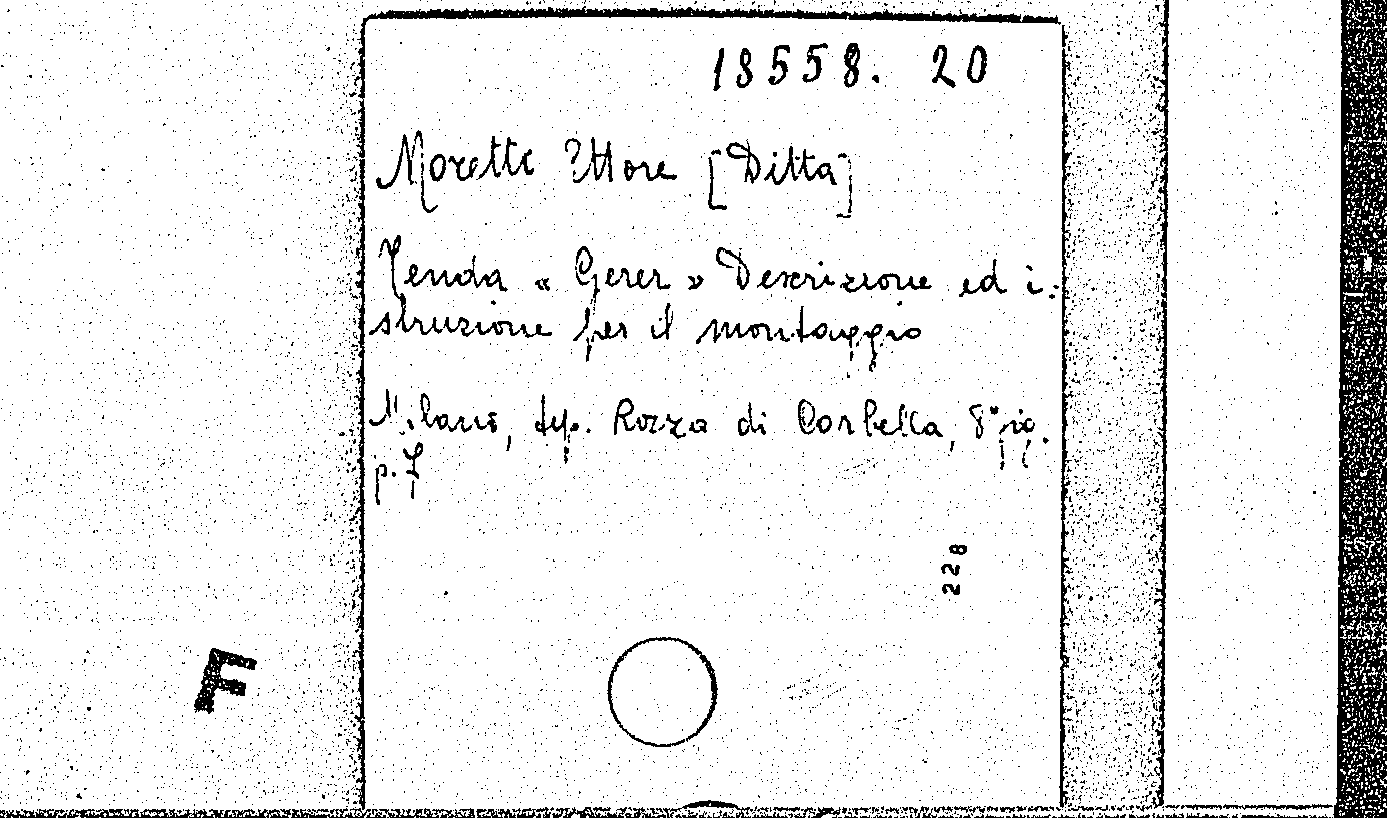 18558. 20
Moretti Ettore [Ditta]
Tenda « Gerer » Descrizione ed i-
struzione per il montaggio
Milano, tip. Rozza di Corbella, 8° pic.
p. 7
228
F